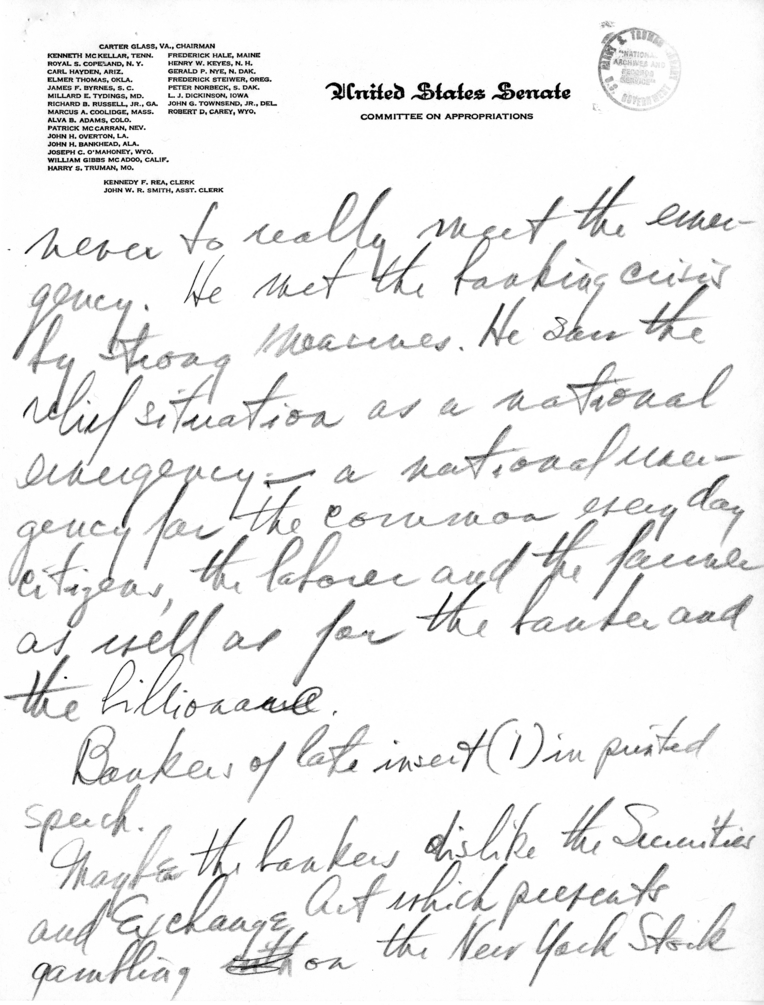 CARTER GLASS, VA., CHAIRMAN
KENNETH MCKELLAR, TENN.
ROYAL S. COPELAND, N. Y.
CARL HAYDEN, ARIZ.
ELMER THOMAS, OKLA.
JAMES F. BYRNES, S. C.
MILLARD E. TYDINGS, MD.
RICHARD B. RUSSELL, JR., GA.
MARCUS A. COOLIDGE, MASS.
ALVA B. ADAMS, COLO.
PATRICK MCCARRAN, NEV.
JOHN H. OVERTON, LA.
JOHN H. BANKHEAD, ALA.
JOSEPH C. O'MAHONEY, WYO.
WILLIAM GIBBS MC ADOO, CALIF.
HARRY S. TRUMAN, MO.
FREDERICK HALE, MAINE
HENRY W. KEYES, N. H.
GERALD P. NYE, N. DAK.
FREDERICK STEIWER, OREG.
PETER NORBECK, S. DAK.
L. J. DICKINSON, IOWA
JOHN G. TOWNSEND, JR., DEL.
ROBERT D. CAREY, WYO.
KENNEDY F. REA, CLERK
JOHN W. R. SMITH, ASST. CLERK
United States Senate
COMMITTEE ON APPROPRIATIONS
HARRY S. TRUMAN LIBRARY
"NATIONAL
ARCHIVES AND
RECORDS
SERVICE"
U.S. GOVERNMENT
never to really meet the emer-
gency. He met the banking crisis
by strong measures. He saw the
relief situation as a national
emergency – a national emer-
gency for the common every day
citizens, the laborer and the farmer
as well as for the banker and
the billionaire.
Bankers of late insert (1) in printed
speech.
Maybe the bankers dislike the Securities
and Exchange Act which prevents
gambling on the New York Stock